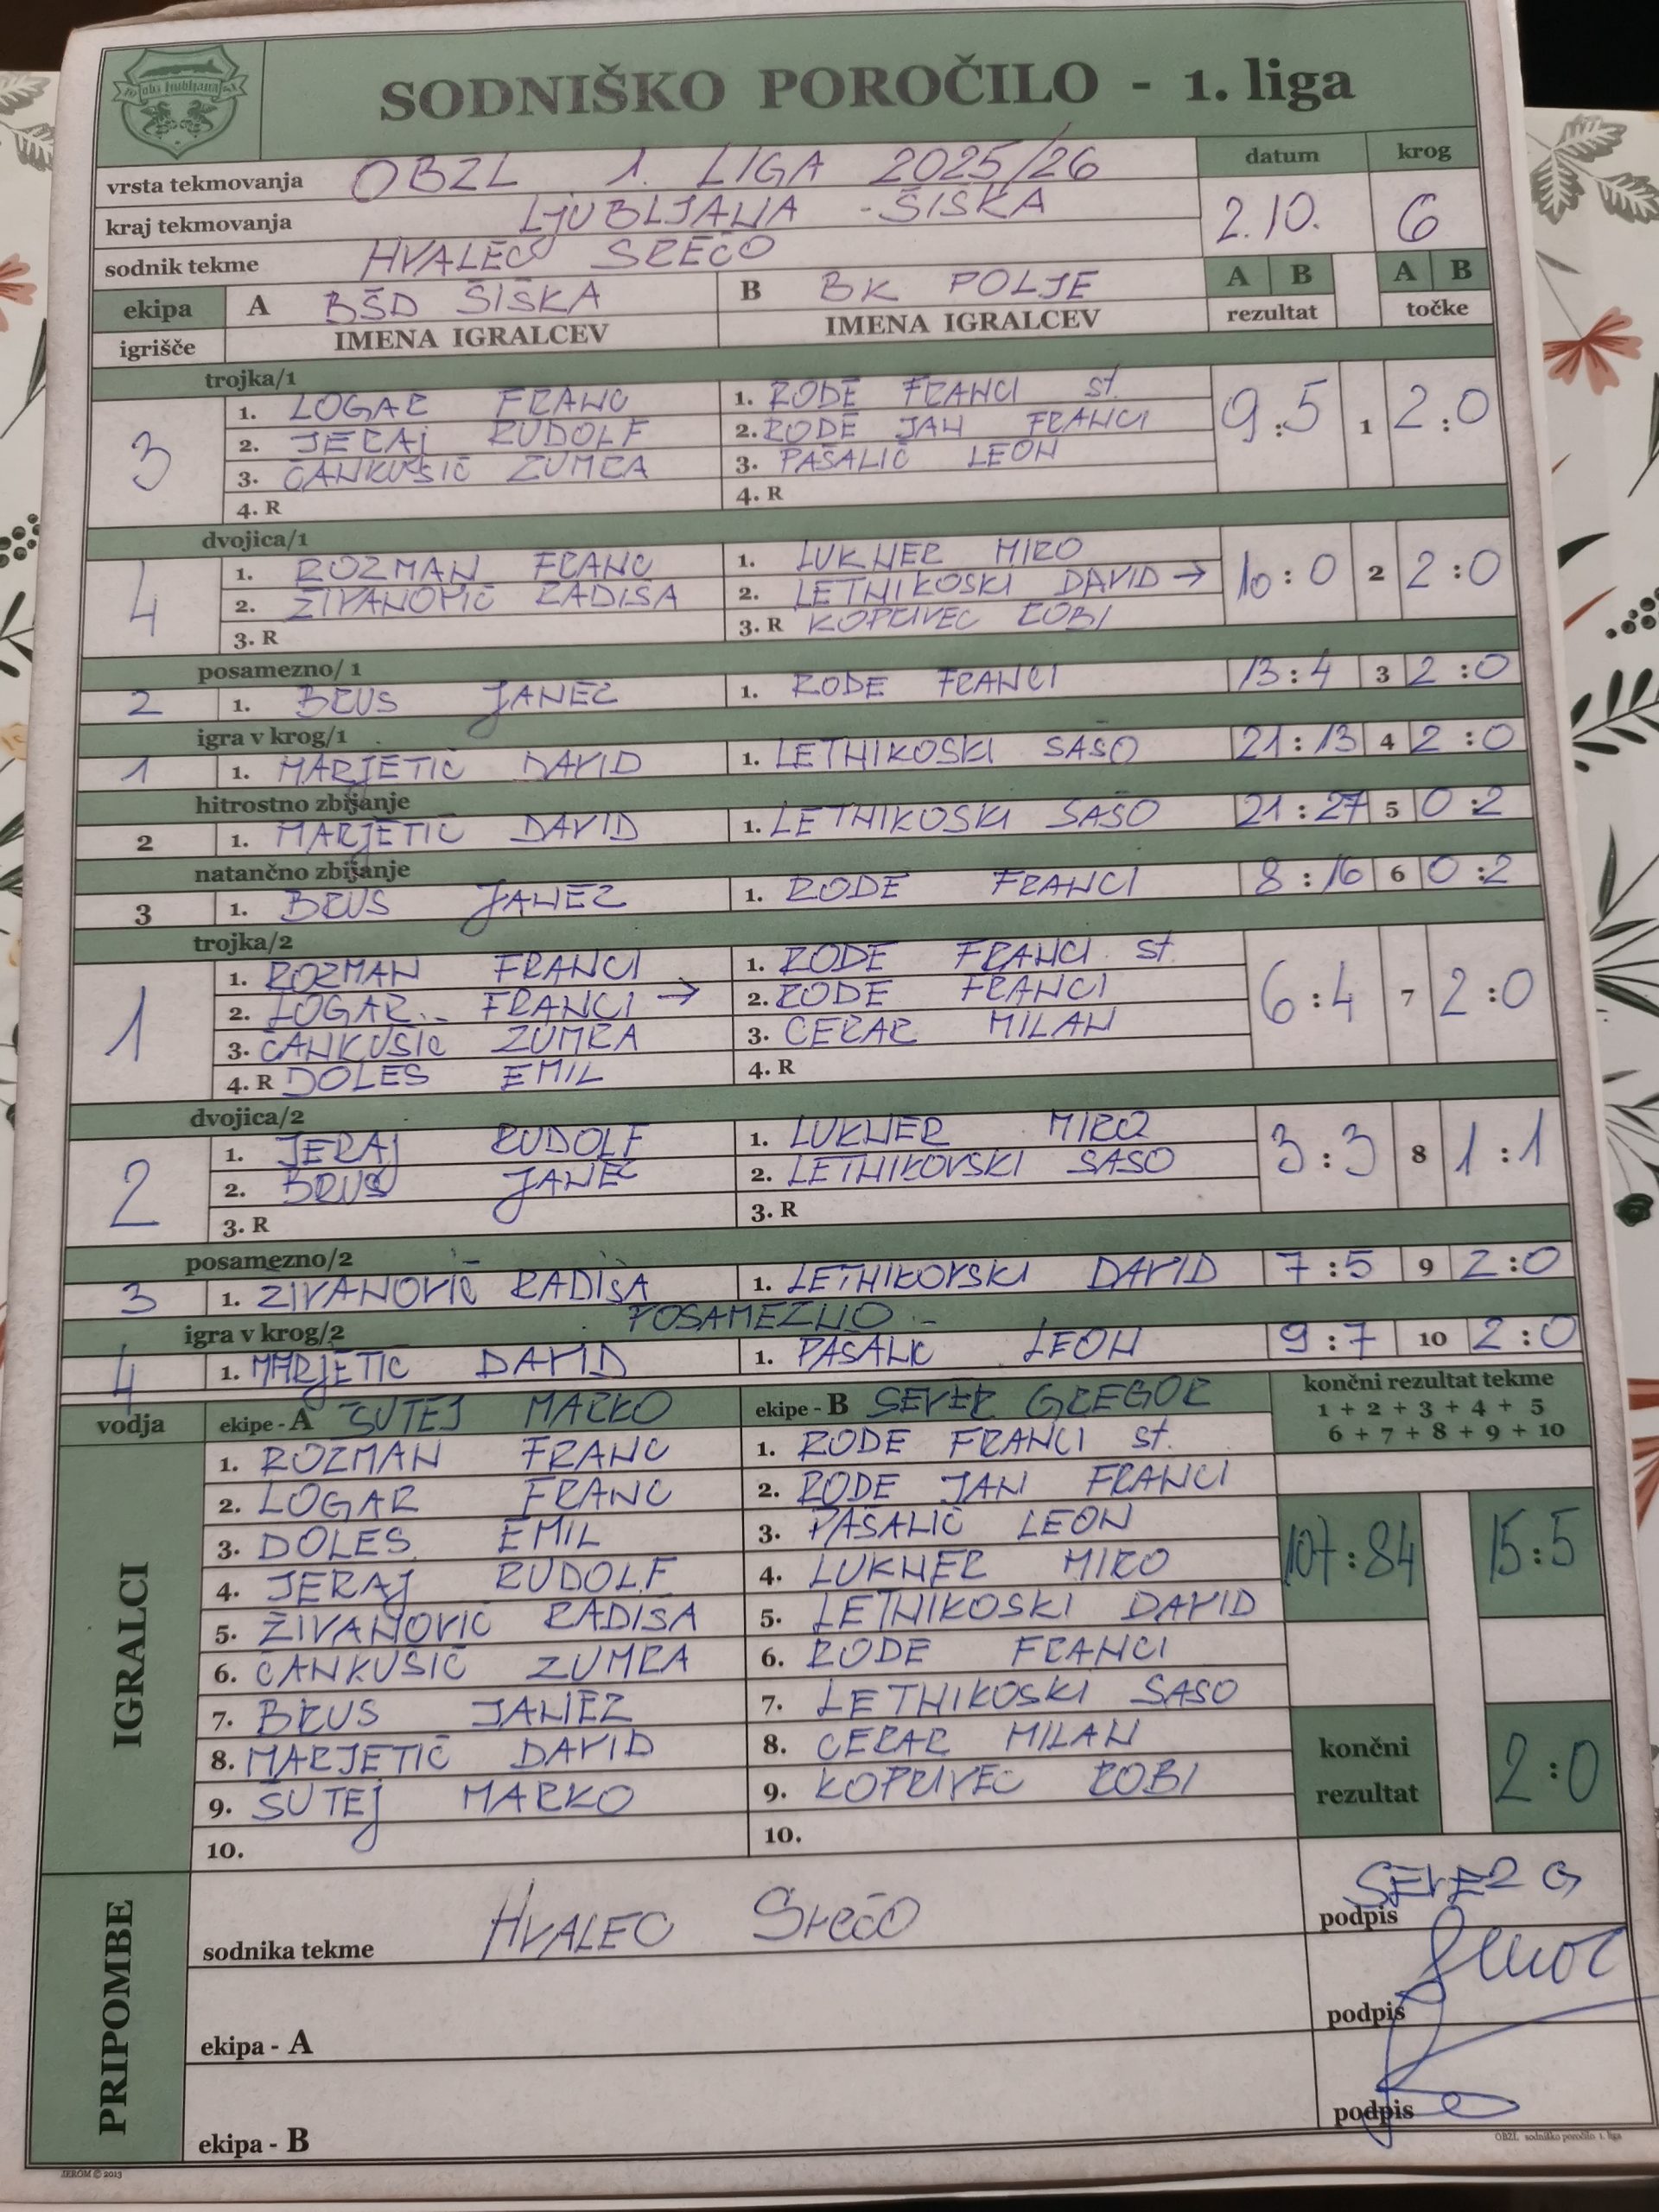 SODNIŠKO POROČILO - 1. liga
vrsta tekmovanja OBZL 1. LIGA 2025/26 datum krog
kraj tekmovanja LJUBLJANA - ŠIŠKA 2.10. 6
sodnik tekme HVALEC SREČO
ekipa A BŠD ŠIŠKA B BK POLJE A B A B
igrišče IMENA IGRALCEV IMENA IGRALCEV rezultat točke
trojka/1
3 9:5 1 2:0
1. LOGAR FRANC 1. RODE FRANCI st.
2. JERAJ RUDOLF 2. RODE JAN FRANCI
3. ČANKUŠIČ ZUMRA 3. PAŠALIČ LEON
4. R 4. R
dvojica/1
4 10:0 2 2:0
1. ROZMAN FRANC 1. LUKNER MIRO
2. ŽIVANOVIČ RADIŠA 2. LETNIKOSKI DAVID →
3. R 3. R KOPRIVEC ROBI
posamezno/ 1
2 1. BRUS JANEZ 1. RODE FRANCI 13:4 3 2:0
igra v krog/1
1 1. MARJETIČ DAVID 1. LETNIKOSKI SAŠO 21:13 4 2:0
hitrostno zbijanje
2 1. MARJETIČ DAVID 1. LETNIKOSKI SAŠO 21:27 5 0:2
natančno zbijanje
3 1. BRUS JANEZ 1. RODE FRANCI 8:16 6 0:2
trojka/2
1 6:4 7 2:0
1. ROZMAN FRANCI 1. RODE FRANCI st.
2. LOGAR FRANCI → 2. RODE FRANCI
3. ČANKUŠIČ ZUMRA 3. CERAR MILAN
4. R DOLES EMIL 4. R
dvojica/2
2 3:3 8 1:1
1. JERAJ RUDOLF 1. LUKNER MIRO
2. BRUS JANEZ 2. LETNIKOVSKI SASO
3. R 3. R
posamezno/2
3 1. ŽIVANOVIČ RADIŠA 1. LETNIKOVSKI DAVID 7:5 9 2:0
igra v krog/2 POSAMEZNO
4 1. MARJETIČ DAVID 1. PAŠALIČ LEON 9:7 10 2:0
vodja ekipe - A ŠUTEJ MARKO ekipe - B SEVER GREGOR končni rezultat tekme
1 + 2 + 3 + 4 + 5
6 + 7 + 8 + 9 + 10
IGRALCI
1. ROZMAN FRANC 1. RODE FRANCI st.
2. LOGAR FRANC 2. RODE JAN FRANCI
3. DOLES EMIL 3. PAŠALIČ LEON
107:84 15:5
4. JERAJ RUDOLF 4. LUKNER MIRO
5. ŽIVANOVIČ RADISA 5. LETNIKOSKI DAVID
6. ČANKUŠIČ ZUMRA 6. RODE FRANCI
7. BRUS JANEZ 7. LETNIKOSKI SASO
8. MARJETIČ DAVID 8. CERAR MILAN
9. ŠUTEJ MARKO 9. KOPRIVEC ROBI
10. 10.
končni rezultat 2:0
PRIPOMBE
sodnika tekme HVALEC Srečo podpis SEVER G
ekipa - A podpis
ekipa - B podpis
JEROM © 2013 OBZL sodniško poročilo 1. liga